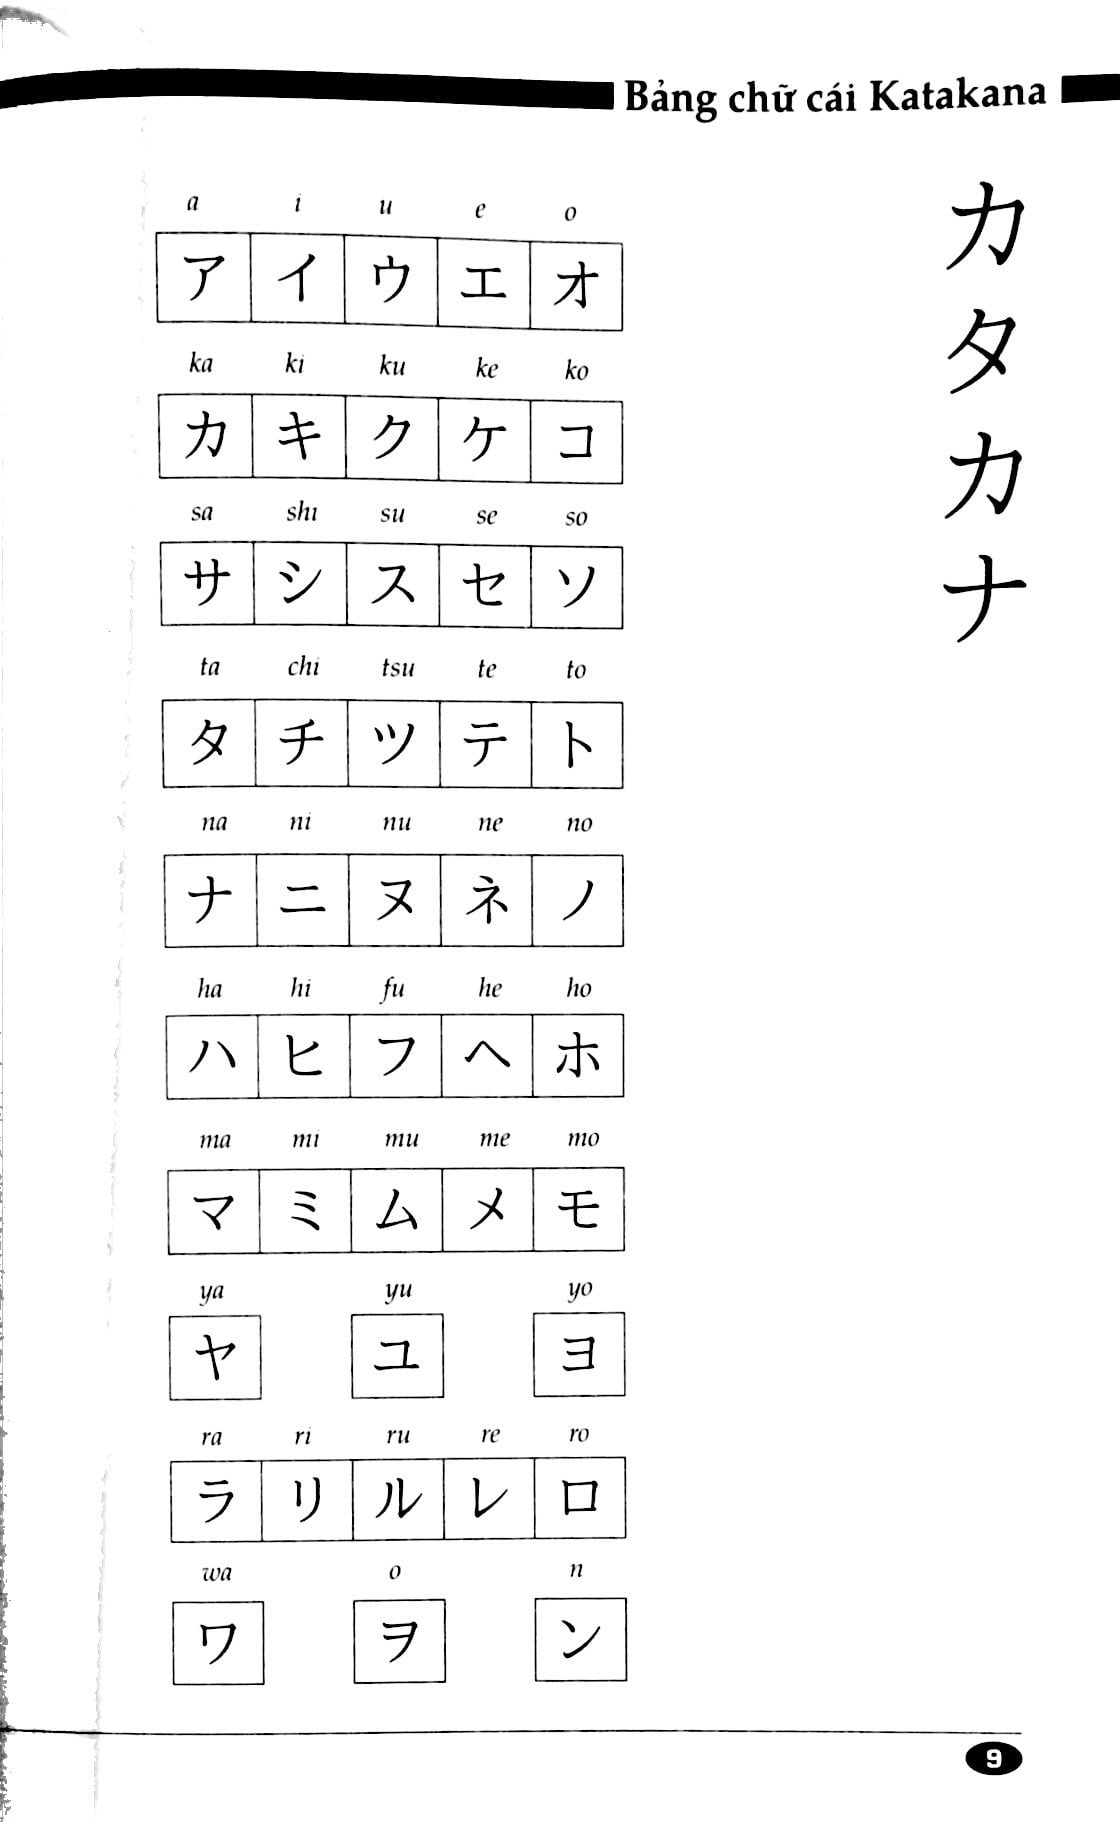 Bảng chữ cái Katakana
カタカナ
a i u e o
ア イ ウ エ オ
ka ki ku ke ko
カ キ ク ケ コ
sa shi su se so
サ シ ス セ ソ
ta chi tsu te to
タ チ ツ テ ト
na ni nu ne no
ナ ニ ヌ ネ ノ
ha hi fu he ho
ハ ヒ フ ヘ ホ
ma mi mu me mo
マ ミ ム メ モ
ya yu yo
ヤ ユ ヨ
ra ri ru re ro
ラ リ ル レ ロ
wa o n
ワ ヲ ン
9